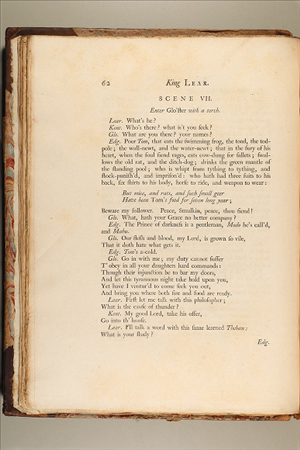 62 King LEAR.
SCENE VII.
Enter Glo'ster with a torch.
Lear. What's he?
Kent. Who's there? what is't you seek?
Glo. What are you there? your names?
Edg. Poor Tom, that eats the swimming frog, the toad, the tod-
pole; the wall-newt, and the water-newt; that in the fury of his
heart, when the foul fiend rages, eats cow-dung for sallets; swal-
lows the old rat, and the ditch-dog; drinks the green mantle of
the standing pool; who is whipt from tything to tything, and
stock-punish'd, and imprison'd: who hath had three suits to his
back, six shirts to his body, horse to ride, and weapon to wear:
But mice, and rats, and such small geer
Have been Tom's food for seven long year;
Beware my follower. Peace, Smulkin, peace, thou fiend!
Glo. What, hath your Grace no better company?
Edg. The Prince of darkness is a gentleman, Modo he's call'd,
and Mahu.
Glo. Our flesh and blood, my Lord, is grown so vile,
That it doth hate what gets it.
Edg. Tom's a-cold.
Glo. Go in with me; my duty cannot suffer
T' obey in all your daughters hard commands:
Though their injunction be to bar my doors,
And let this tyrannous night take hold upon you,
Yet have I ventur'd to come seek you out,
And bring you where both fire and food are ready.
Lear. First let me talk with this philosopher;
What is the cause of thunder?
Kent. My good Lord, take his offer,
Go into th' house.
Lear. I'll talk a word with this same learned Theban:
What is your study?
Edg.